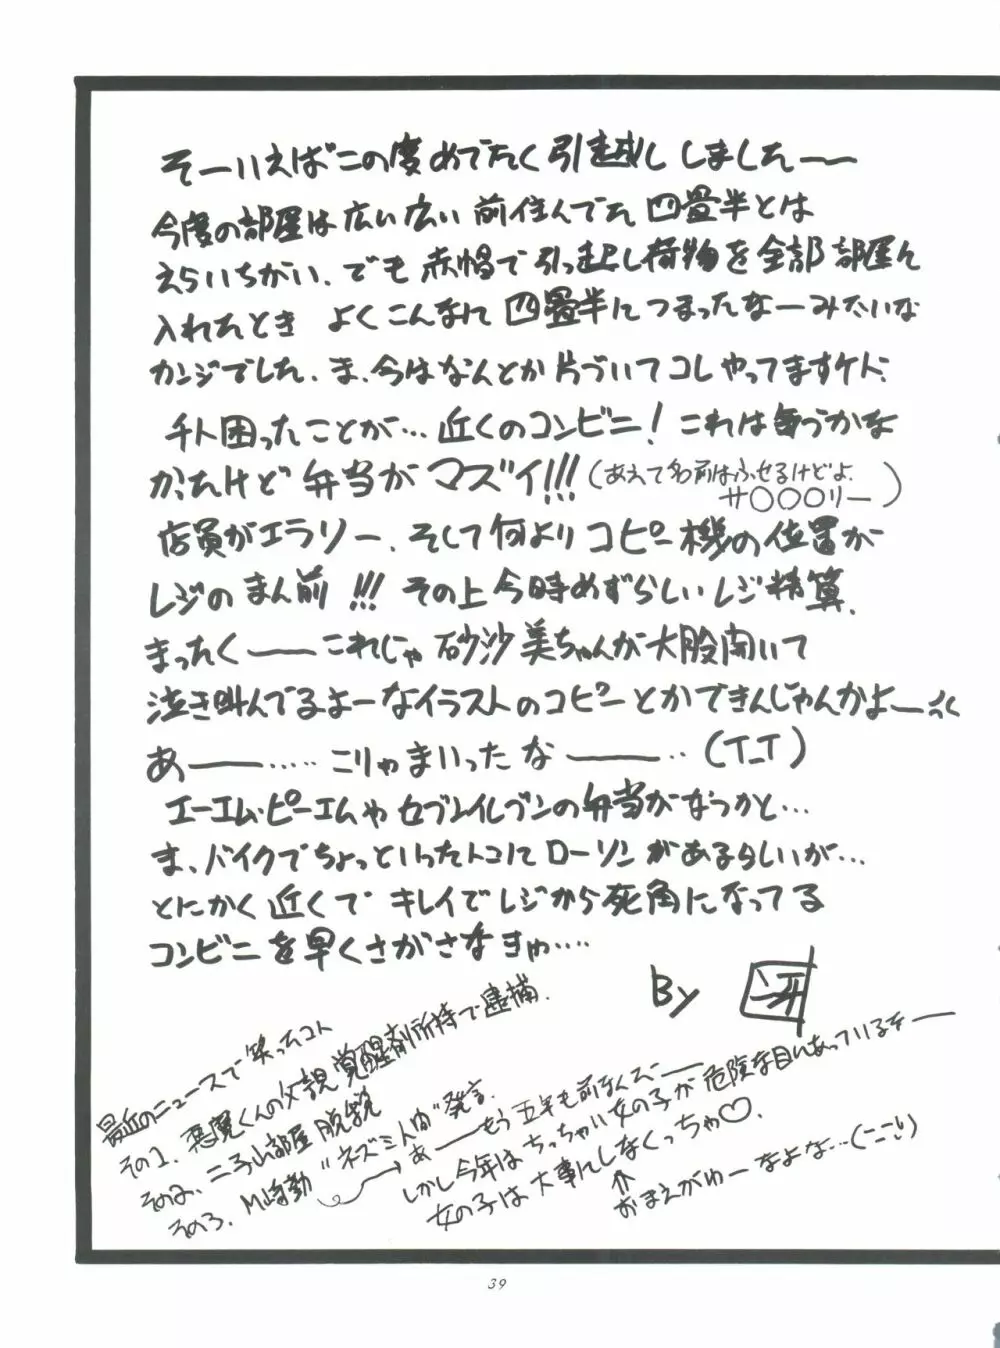 そーいえばこの度めでたく引越ししました——
今度の部屋は広い広い 前住んでた 四畳半とは
えらいちがい、でも 赤帽で引っ越し荷物を全部部屋に
入れたとき よくこんなに 四畳半につまったなーみたいな
カンジでした、ま、今はなんとか片づいてコレやってますケド、
チト困ったことが…近くのコンビニ!これは毎うかな
かたけど 弁当が マズイ!!!(あえて名前はふせるけどよ、
サ○○○リー)
店員がエラソー、そして何よりコピー機の位置が
レジの まん前 !!! その上今時めずらしいレジ精算、
まったく——これじゃ 砂沙美ちゃんが大股開いて
泣き叫んでるよーなイラストのコピーとかできんじゃんかよー
あ——……こりゃまいったな——‥(T_T)
エーエム・ピーエムやセブンイレブンの弁当がなつかと…
ま、バイクでちょっといったトコにローソンがあるらしいが…
とにかく近くで キレイでレジから死角になってる
コンビニを早くさがさなきゅ‥‥
By
最近のニュースで笑ったコト
その1、悪魔くんの父親覚醒剤所持で逮捕、
その2、二子山部屋脱税
その3、M崎勤 "ネズミ人間"発言、
あ——もう五年も前なんだ——
しかし今年はちっちゃい女の子が危険な目にあっているな——
女の子は大事にしなくっちゃ♡、
⇑
おまえがゆーなよな…
39